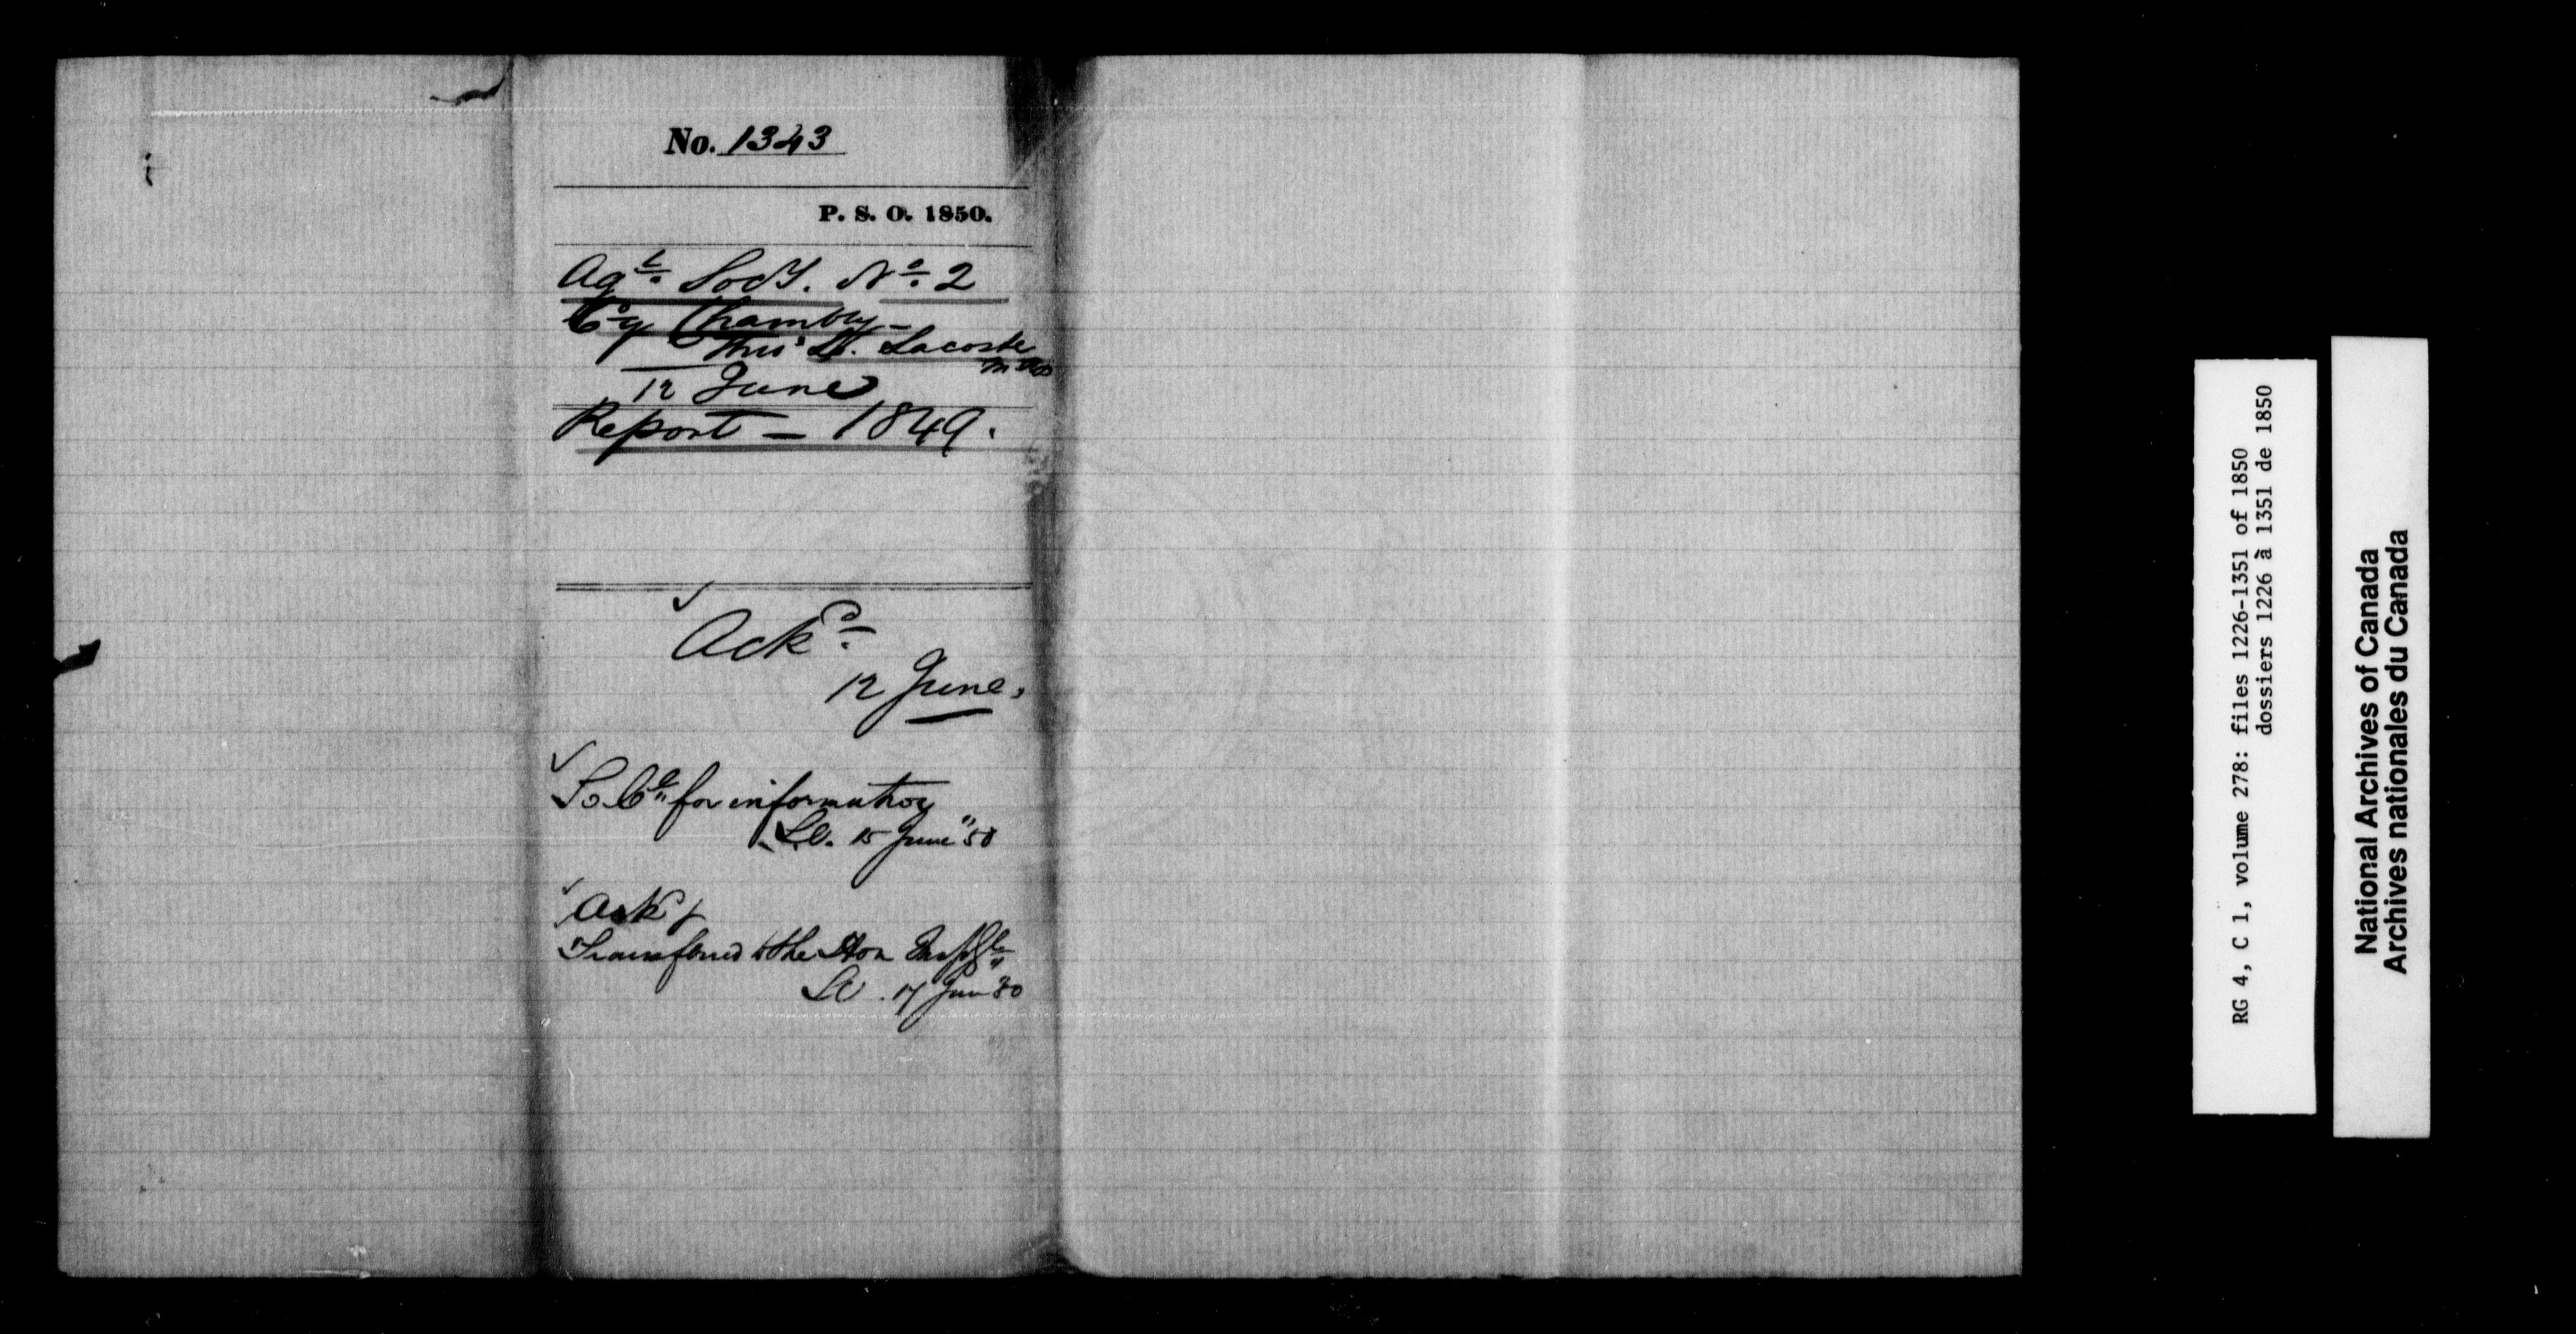 No. 1343
P. S. O. 1850.
Agl. Socy. No. 2
Coy Chambly -
thro' L. Lacoste
12 June
Report - 1849.
Ackd.
12 June.
for information
15 June "50
Ackd
Transferred to the Hon
17 June 50
RG 4, C 1, volume 278: files 1226-1351 of 1850
dossiers 1226 à 1351 de 1850
National Archives of Canada
Archives nationales du Canada